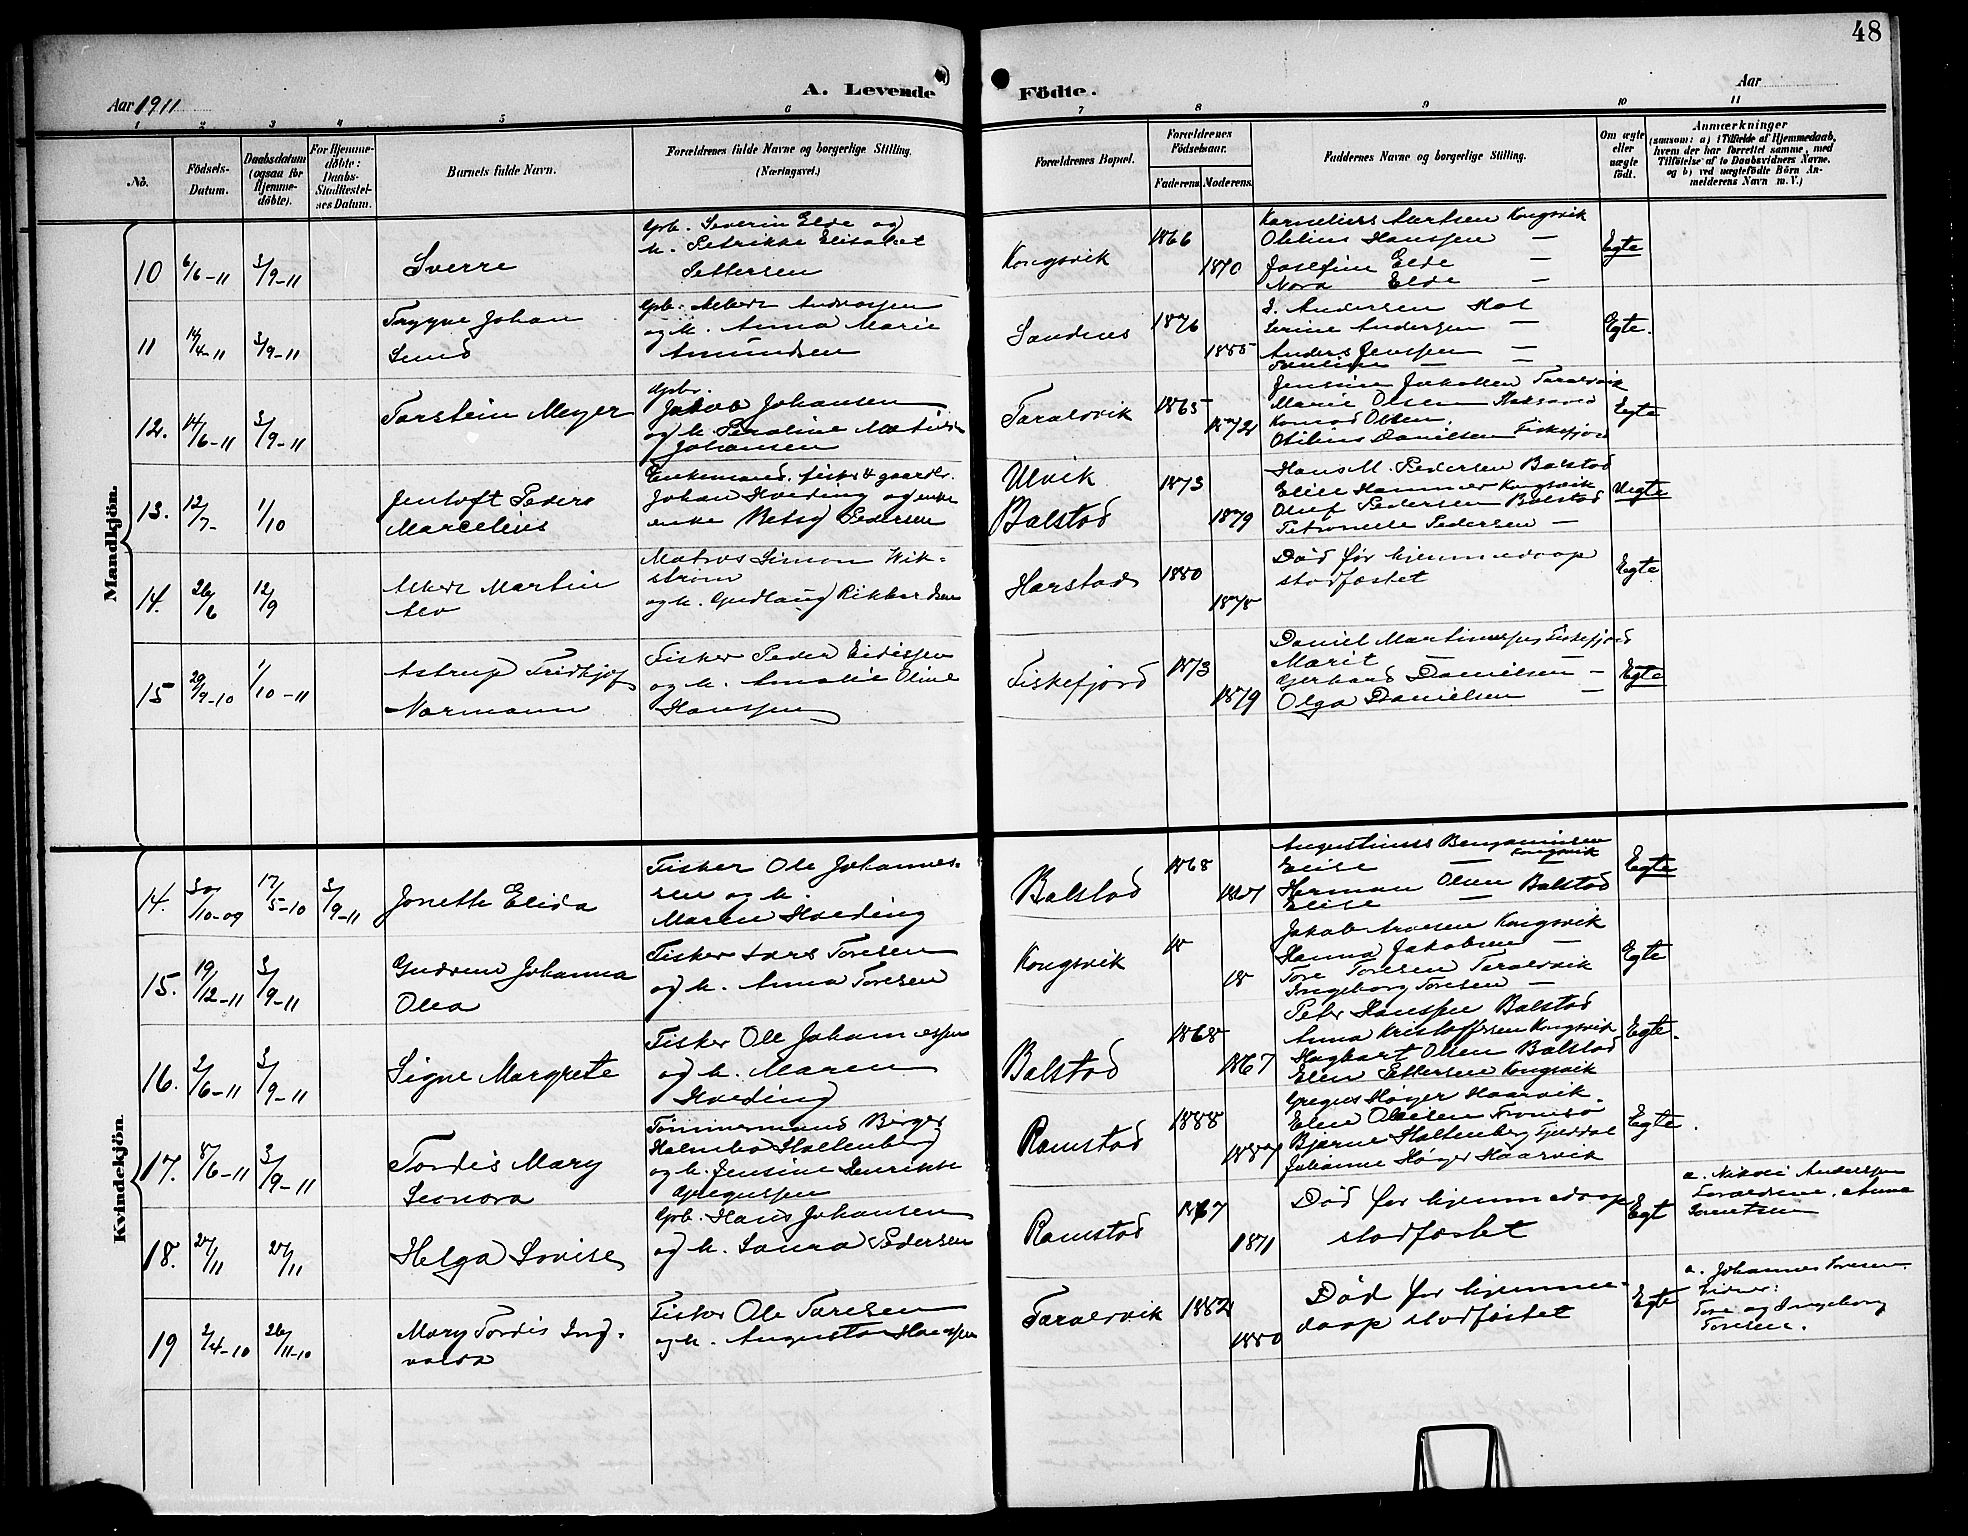 48
Aar 1911
A. Levende
Födte.
Aar
1 2 3 4 5 6 7 8 9 10 11
No.
Födsels-
Datum.
Daabsdatum
(ogsaa for
Hjemme-
döbte).
For Hjemme-
döbte:
Daabs-
Stadfæstel-
ses Datum.
Barnets fulde Navn.
Forældrenes fulde Navne og borgerlige Stilling.
(Næringsvei.)
Forældrenes Bopæl.
Forældrenes
Födselsaar.
Faderens. Moderens.
Faddernes Navne og borgerlige Stilling.
Om ægte
eller
uægte
födt.
Anmærkninger
(saasom: a) i Tilfælde af Hjemmedaab,
hvem der har forrettet samme, med
Tilföielse af to Daabsvidners Navne,
og b) ved uægtefödte Börn An-
melderens Navn m. V.)
Mandkjön.
10 6/6-11 3/9-11
Sverre
gpb. Severin Elde og
h. Petrikke Elisabet
Settersen
Kongsvik
1866
1870
Kornelius Aertsen Kongsvik
Othlius Hanssen —
Josefine Elde —
Nora Elde —
Egte
11 14/4-11 3/9-11
Trygve Johan
Sund
gpb. Albert Andreassen
og h. Anna Marie
Amundsen
Sandnes
1876
1885
S. Andersen Hol
Serine Andersen —
Anders Jenssen —
Egte.
12. 14/6-11 3/9-11
Torstein Meyer
gpb.
Jakob Johansen
og h. Peroline Matilde
Johansen
Taraldvik
1865
1872
Jensine Jakobsen Taraldvik
Marie Olsen
Konrad Olsen,
Othilius Danielsen Fiskefjord
Egte
13. 12/7- 1/10
Jentoft Peder
Marcelius
Enkemand, fisker & gaardbr.
Johan Hveding og
enke Betsy Pedersen
Ulvik
Balstad
1873
1879
Hans M. Pedersen Balstad
Elise Hammer Kongsvik
Oluf Pedersen Balstad
Petronelle Pedersen —
Uegte
14. 26/6 12/9
Albert Martin
Alv
Matros Simon Wik-
strøm
og h. Gudlaug Rikhardsen
Harstad
1880
1878
Død før hjemmedaap
stadfæstet
Egte
15 29/9-10 1/10-11
Astrup Fridtjof
Normann
Fisker Peder Eidissen
og h. Amalie Oline
Hanssen
Fiskefjord
1873
1879
Daniel Martinussen Fiskefjord
Marit — —
Gerhard Danielsen —
Olga Danielsen —
Egte
Kvindekjön.
14. 30/10-09 17/5-10 3/9-11
Jonette Elida
Fisker Ole Johannes-
sen og h.
Maren Hveding
Balstad
1868
1867
Augustinus Benjaminsen
Kongsvik
Elise — —
Herman Olsen Balstad
Elise — —
Egte
15. 19/12-11 3/9-11
Gudrun Johanna
Olea
Fisker Lars Toresen
og h. Anna Toresen
Kongsvik
18
18
Jakob Kongsvik
Hanna Jakobsen —
Tore Toresen Taraldvik
Ingeborg Toresen —
Egte
16. 2/6-11 3/9-11
Signe Margrete
Fisker Ole Johannessen
og h. Maren
Hveding
Balstad
1868
1867
Peter Hanssen Balstad
Anna Kristoffersen Kongsvik
Hagbart Olsen Balstad
Elen Settersen Kongsvik
Egte.
17. 8/6-11 3/9-11
Tordis Mary
Leonora
Tømmermand Birger
Holmbo Holtenberg
og h. Jensine Henrikke
Gregussen
Ramstad
1888
1887
Gregus Høyer Haarvik.
Elen Olsen Tromsø
Bjarne Holtenberg Fjeldal
Johanne Høyer Haarvik
Egte.
18. 27/11 27/11
Helga Lovise
Gpb. Hans Johansen
og h. Laura Pedersen
Ramstad
1867
1871
Død før hjemmedaap
stadfæstet
Egt
a. Nikolai Anderssen
Forældrene. Anna
19 2/4-10 26/11-10
Mary Tordis Ing-
valda
Fisker Ole Toresen
og h. Augusta Hanssen
Taraldvik
1882
1880
Død før hjemme-
daap stadfæstet
Egte
a. Johannes Toresen.
Vidner:
Tore og Ingeborg
Toresen.